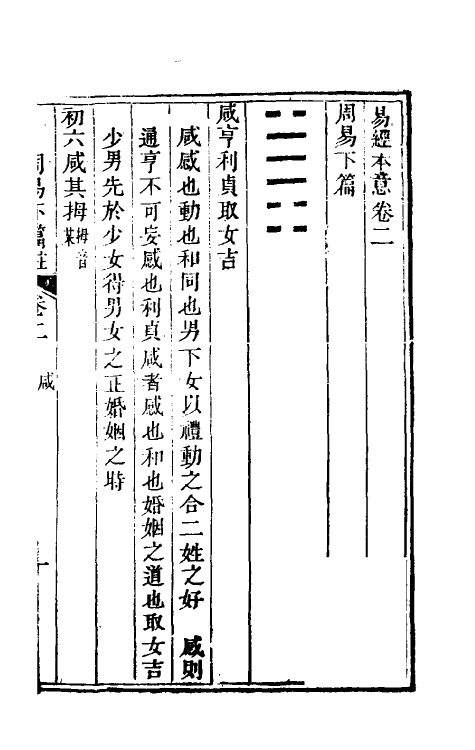 易經本意卷二
周易下篇
咸亨利貞取女吉
咸感也動也和同也男下女以禮動之合二姓之好　咸則
通亨不可妄感也利貞咸者感也和也婚姻之道也取女吉
少男先於少女得男女之正婚姻之時
初六咸其拇拇音某
周易下篇註　卷二　咸　一